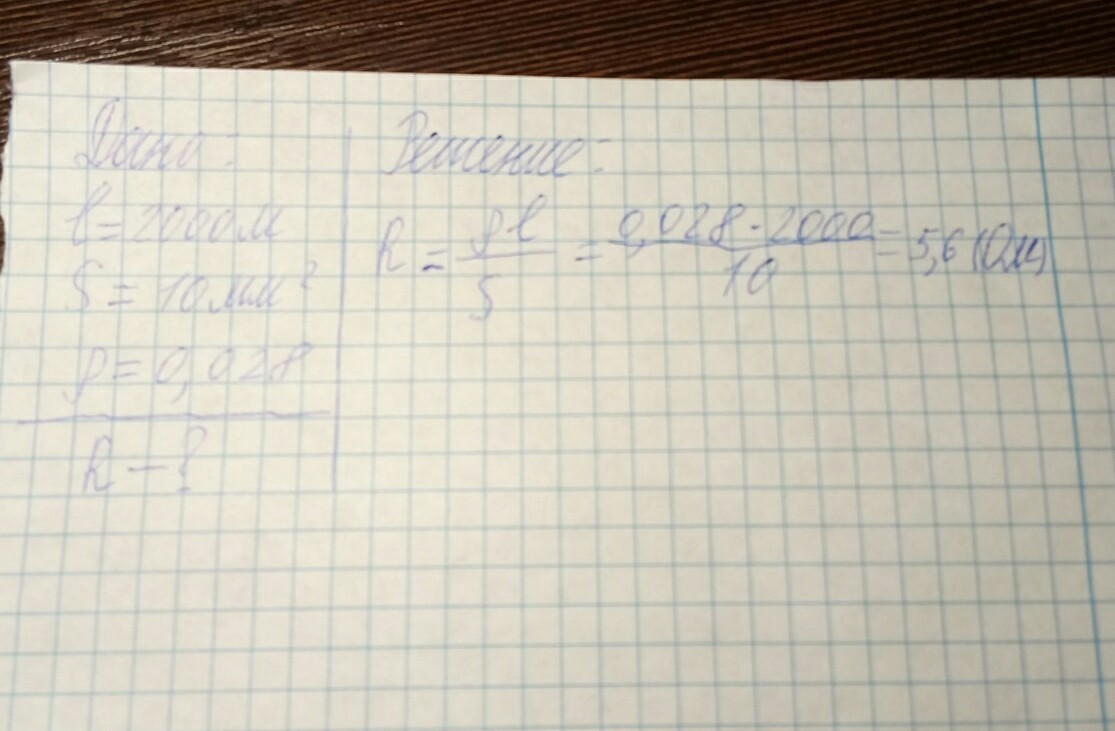 Дано:
l = 2000м
S = 10мм²
ρ = 0,028
R - ?
Решение:
R = ρl / S = 0,028 · 2000 / 10 = 5,6 (Ом)